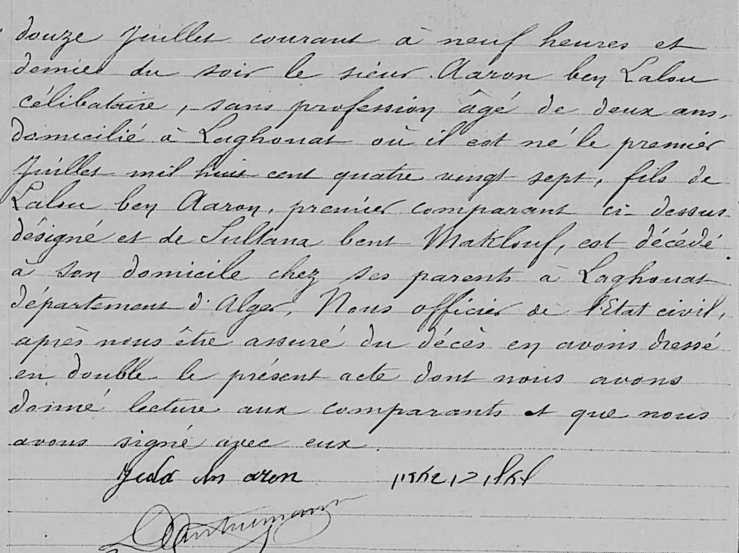 douze Juillet courant à neuf heures et
demie du soir le sieur Aaron ben Lalou
célibataire, sans profession âgé de deux ans,
domicilié à Laghouat où il est né le premier
Juillet mil huit cent quatre vingt sept, fils de
Lalou ben Aaron, premier comparant ci-dessus
désigné et de Sultana bent Maklouf, est décédé
à son domicile chez ses parents à Laghouat
département d'Alger. Nous officier de l'Etat civil,
après nous être assuré du décès en avons dressé
en double le présent acte dont nous avons
donné lecture aux comparants et que nous
avons signé avec eux.